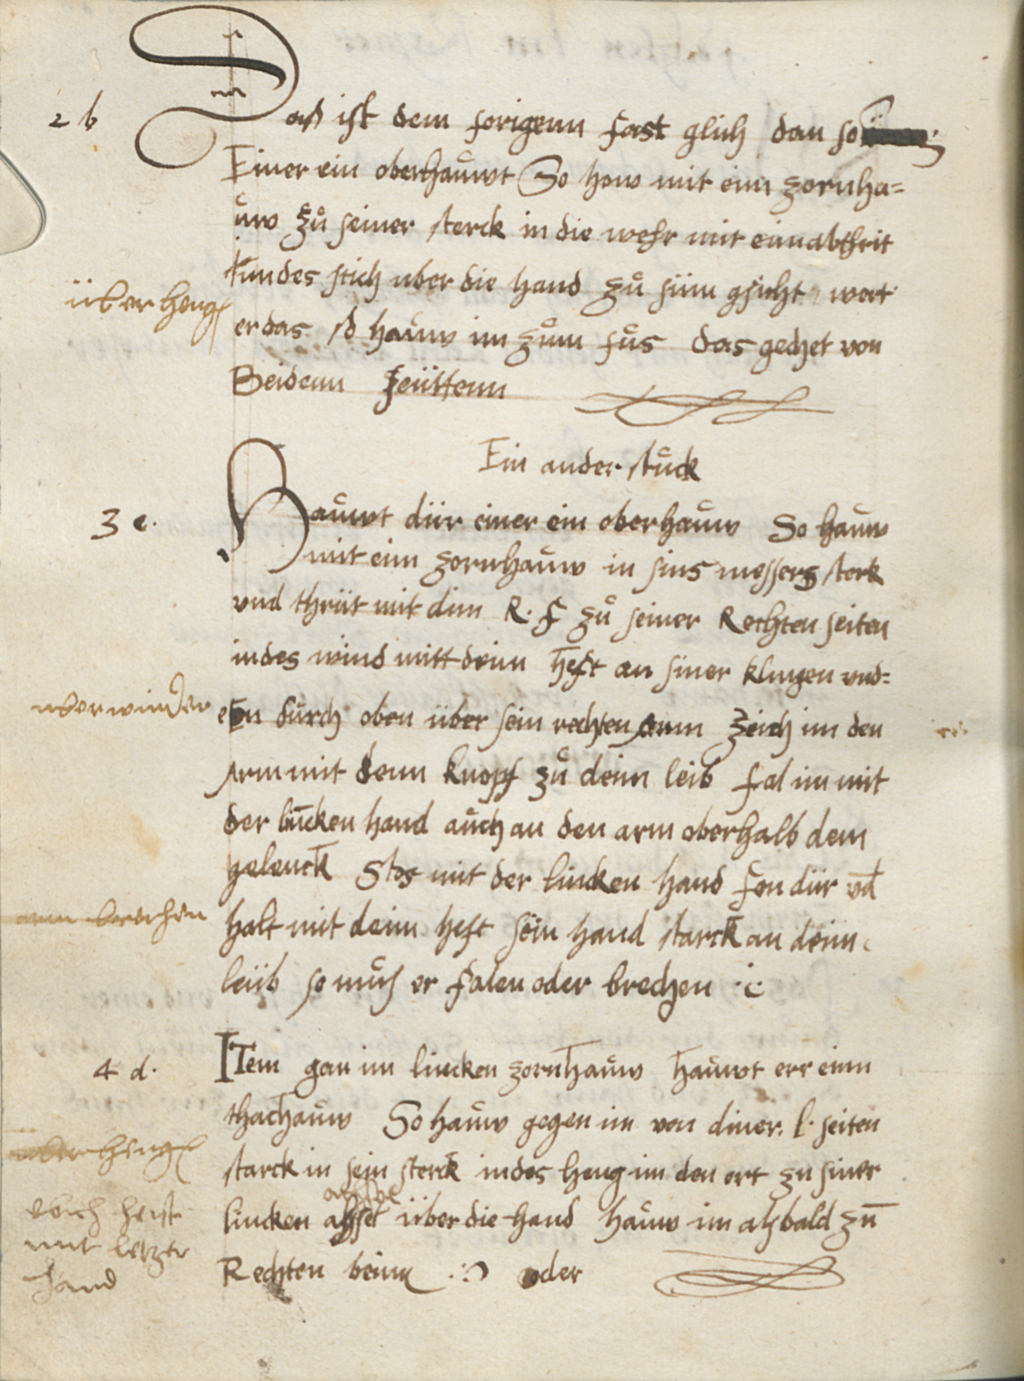 2 b
Das ist dem forigenn fast glich dan so
Einer ein oberhauwt So how mit enn zornha=
uw zů seiner sterck in die wehr mit einn abthrit
Inndes stich uber die hand zů sinn gsicht wert
überheng
er das so hauw im zům fůs das gechet von
Beidenn seüttenn
Ein ander stuck
3 c.
Hauwt dür einer ein oberhauw So hauw
mit einn zornhauw in sins messers sterk
vnd thrüt mit dinn R. f zů seiner Rechten seiten
indes wind mitt deinn heft an siner klingen vnd=
uberwinden
en durch oben über sein rechten arm zeich im den
Arm mit denn knopf zů deinn leib fal im mit
der lincken hand auch an den arm oberhalb dem
gelenck Stos mit der lincken hand fon dür vnd
arm brechen
halt mit deinn heft sein hand starck an deinn
leüb so mus er falen oder brechen
4 d.
ITem gan im lincken zornhauw hauwt err einn
thachauw So hauw gegen im von diner. l. seiten
überheng
starck in sein sterck indes heng im den ort zu siner
achsel
lincken achsel über die hand hauw im alsbald zu
mit letzer
Rechten beinn oder
hand